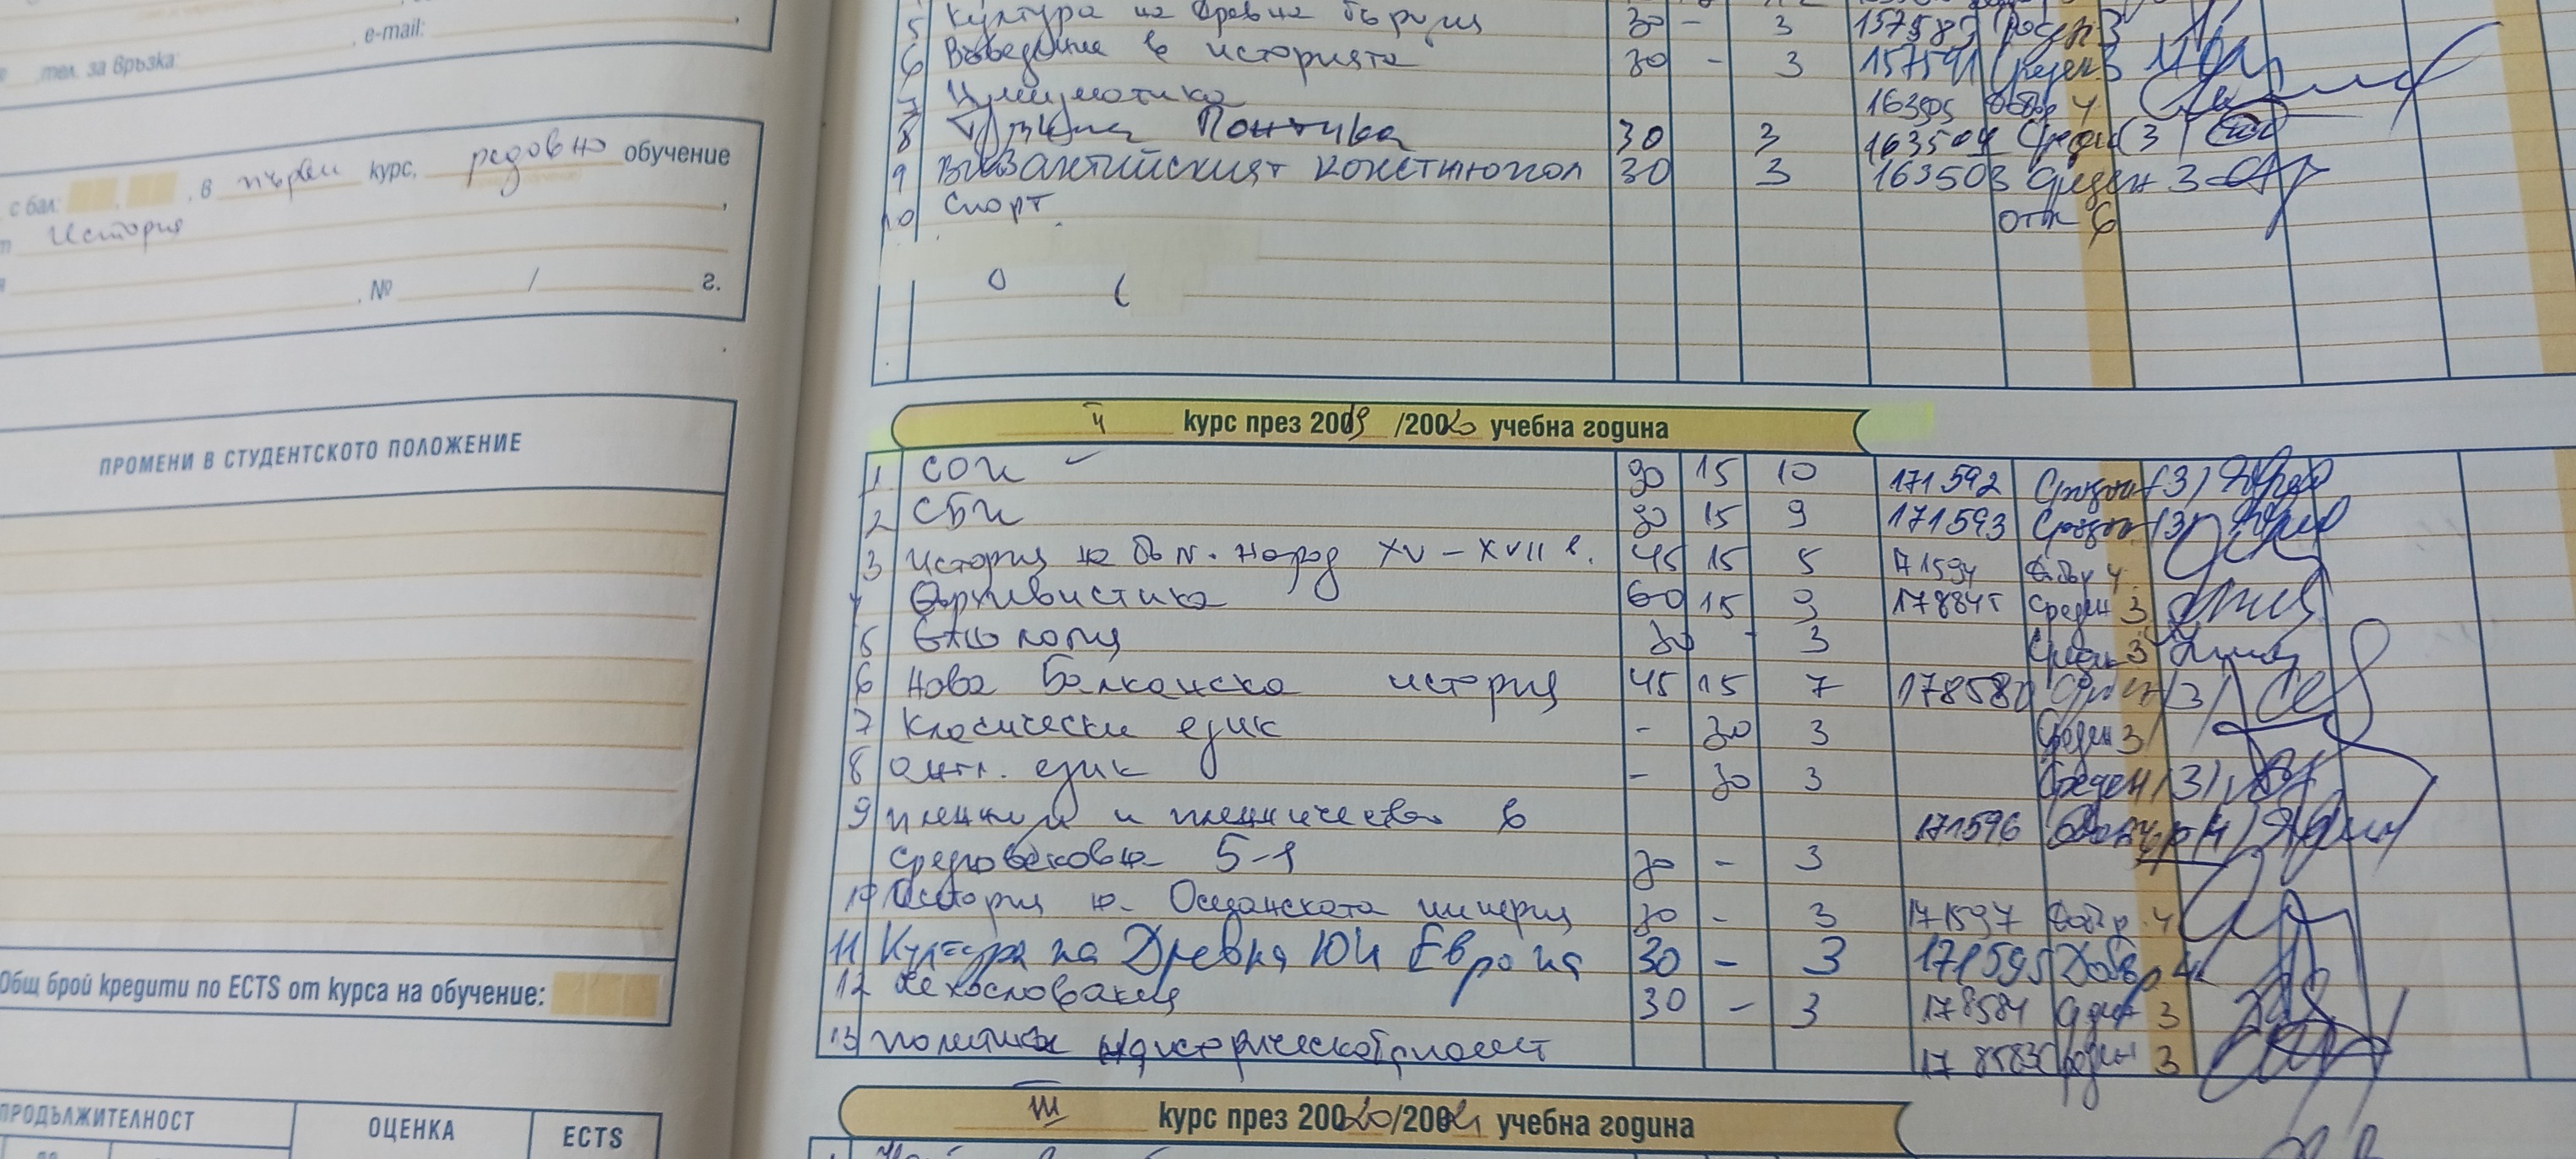 , e-mail:
тел. за връзка:
с бал: , в първи курс, редовно обучение
История
, № / г.
ПРОМЕНИ В СТУДЕНТСКОТО ПОЛОЖЕНИЕ
Общ брой кредити по ECTS от курса на обучение:
ПРОДЪЛЖИТЕЛНОСТ ОЦЕНКА ECTS
5 Култура на Древна 30 - 3
6 Въведение в историята 30 - 3 157591 Среден 3
7 Нумизматика 163505 добър 4
8 Понтика 30 3 163504 Среден (3)
9 Византийският 30 3 163503 Среден 3
10 Спорт отл 6
II курс през 2019 /2020 учебна година
1 СОИ 90 15 10 171592 Среден (3)
2 СБИ 15 9 171593 Среден (3)
3 История на бълг. народ XV - XVII в. 45 15 5 171594 добър 4
4 Архивистика 60 15 9 Среден 3
5 Етнология 30 - 3 Среден 3
6 Нова Балканска история 45 15 7 178580 Среден (3)
7 Класически език - 30 3 Среден 3
8 англ. език - 30 3 Среден (3)
9 пленници и пленничество в 171596 Добър (4)
Средновековие 5-9 30 - 3
10 История на Османската империя 30 - 3 171597 добър 4
11 Култура на Древна ЮИ Европа 30 - 3 171595 Добър 4
12 Чехословакия 30 - 3 178584 Среден 3
13 178583 Среден 3
III курс през 2020/2021 учебна година